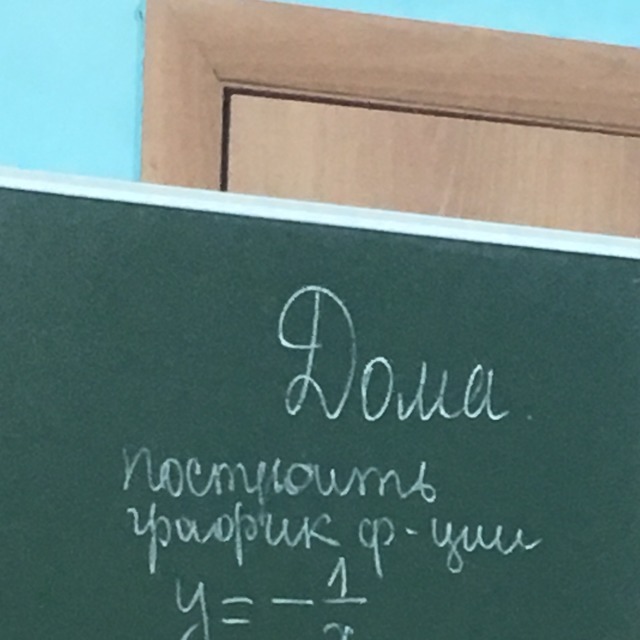 Дома.
построить
график ф-ции
y = - 1/x